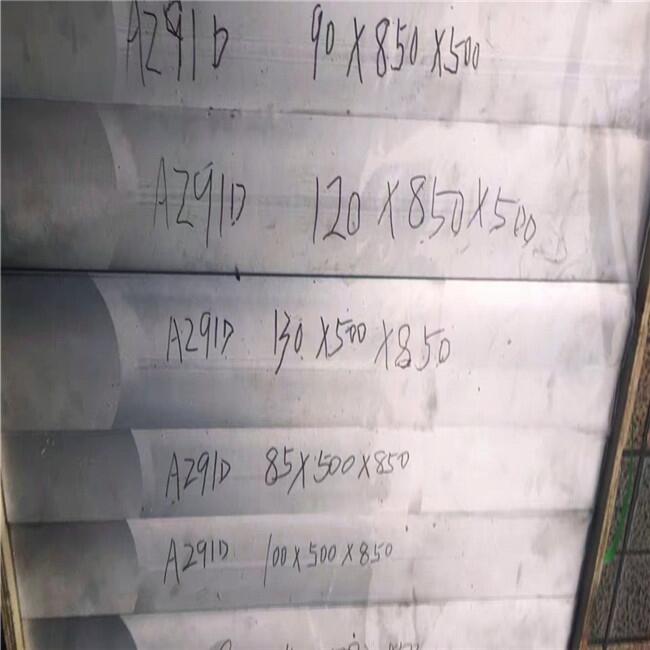 AZ91D 90X850X500
AZ91D 120X850X500
AZ91D 130X500X850
AZ91D 85X500X850
AZ91D 100X500X850